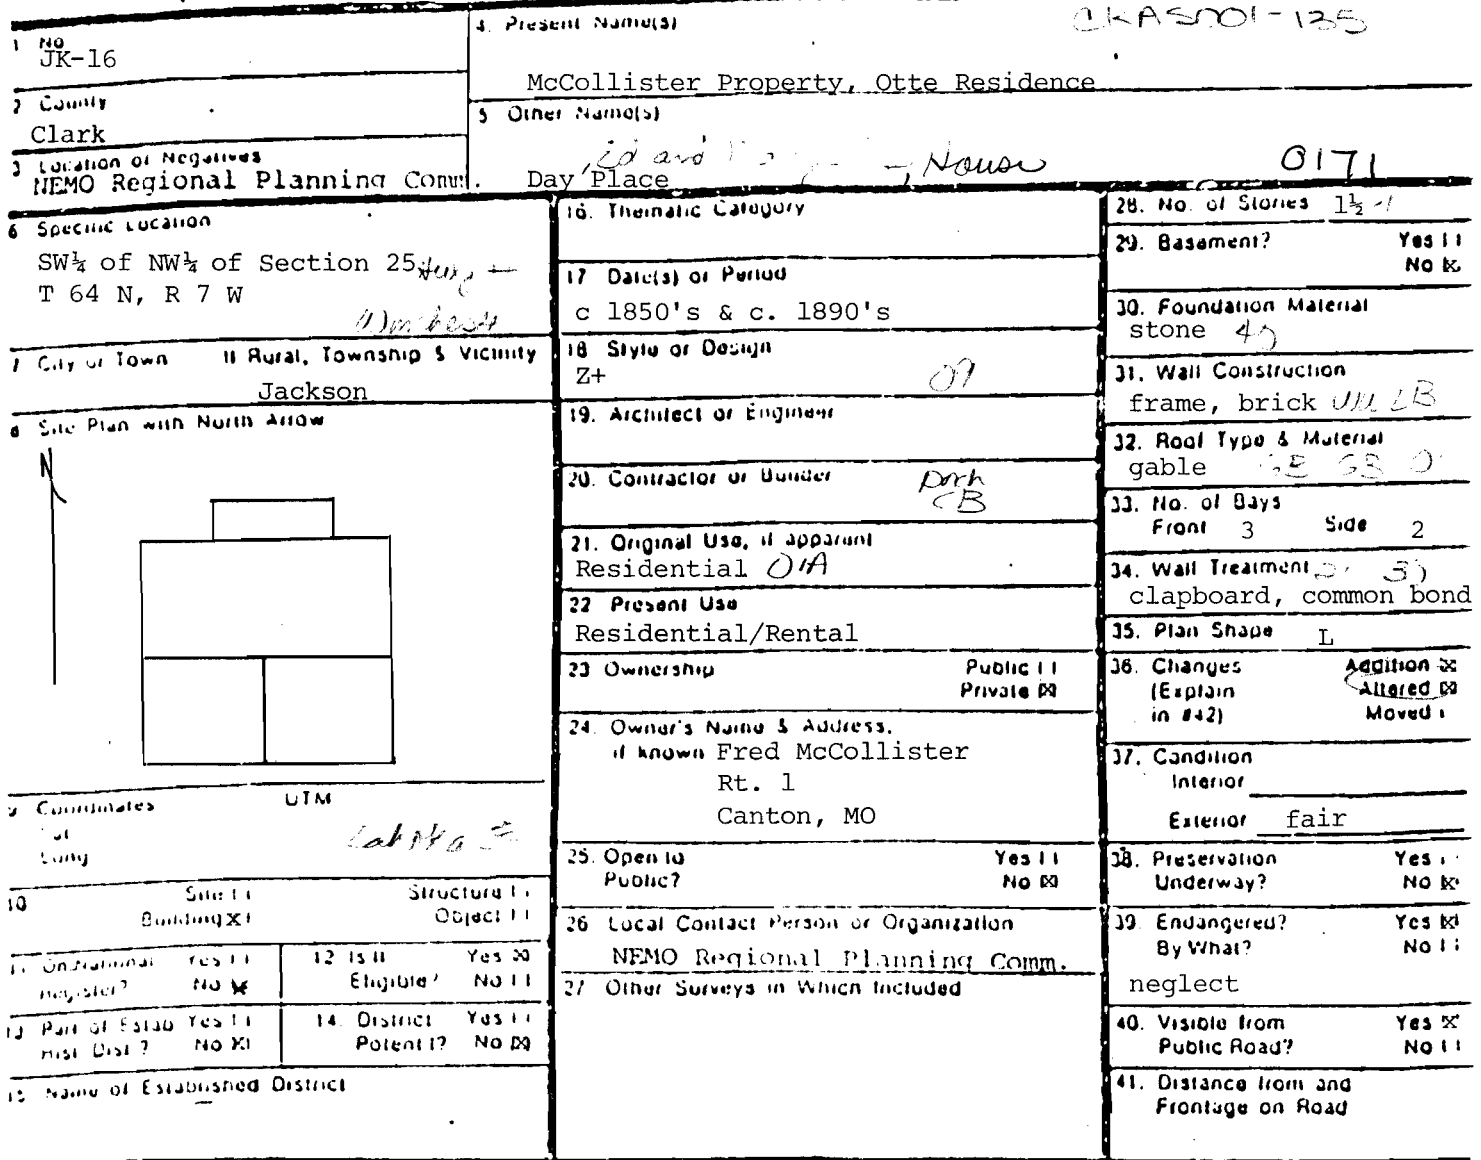 CKAS001-135
1 No
JK-16
4. Present Name(s)
McCollister Property, Otte Residence
2 County
Clark
5 Other Name(s)
Day Place
House
0171
3 Location of Negatives
NEMO Regional Planning Comm.
6 Specific Location
SW¼ of NW¼ of Section 25
T 64 N, R 7 W
7 City or Town If Rural, Township & Vicinity
Jackson
8 Site Plan with North Arrow
N
9 Coordinates UTM
Lat
Long
10 Site [ ] Structure [ ]
Building [X] Object [ ]
11 On National Yes [ ]
Register? No [X]
12 Is It Yes [X]
Eligible? No [ ]
13 Part of Estab Yes [ ]
Hist Dist? No [X]
14. District Yes [ ]
Potent'l? No [X]
15 Name of Established District
16. Thematic Category
17 Date(s) or Period
c 1850's & c. 1890's
18 Style or Design
Z+
19. Architect or Engineer
20. Contractor or Builder
Porch
CB
21. Original Use, if apparent
Residential
22 Present Use
Residential/Rental
23 Ownership Public [ ]
Private [X]
24. Owner's Name & Address,
if known Fred McCollister
Rt. 1
Canton, MO
25. Open to Yes [ ]
Public? No [X]
26 Local Contact Person or Organization
NEMO Regional Planning Comm.
27 Other Surveys in Which Included
28. No. of Stories 1½
29. Basement? Yes [ ]
No [X]
30. Foundation Material
stone 40
31. Wall Construction
frame, brick
32. Roof Type & Material
gable
33. No. of Bays
Front 3 Side 2
34. Wall Treatment
clapboard, common bond
35. Plan Shape L
36. Changes Addition [X]
(Explain Altered [X]
in #42) Moved [ ]
37. Condition
Interior
Exterior fair
38. Preservation Yes [ ]
Underway? No [X]
39. Endangered? Yes [X]
By What? No [ ]
neglect
40. Visible from Yes [X]
Public Road? No [ ]
41. Distance from and
Frontage on Road